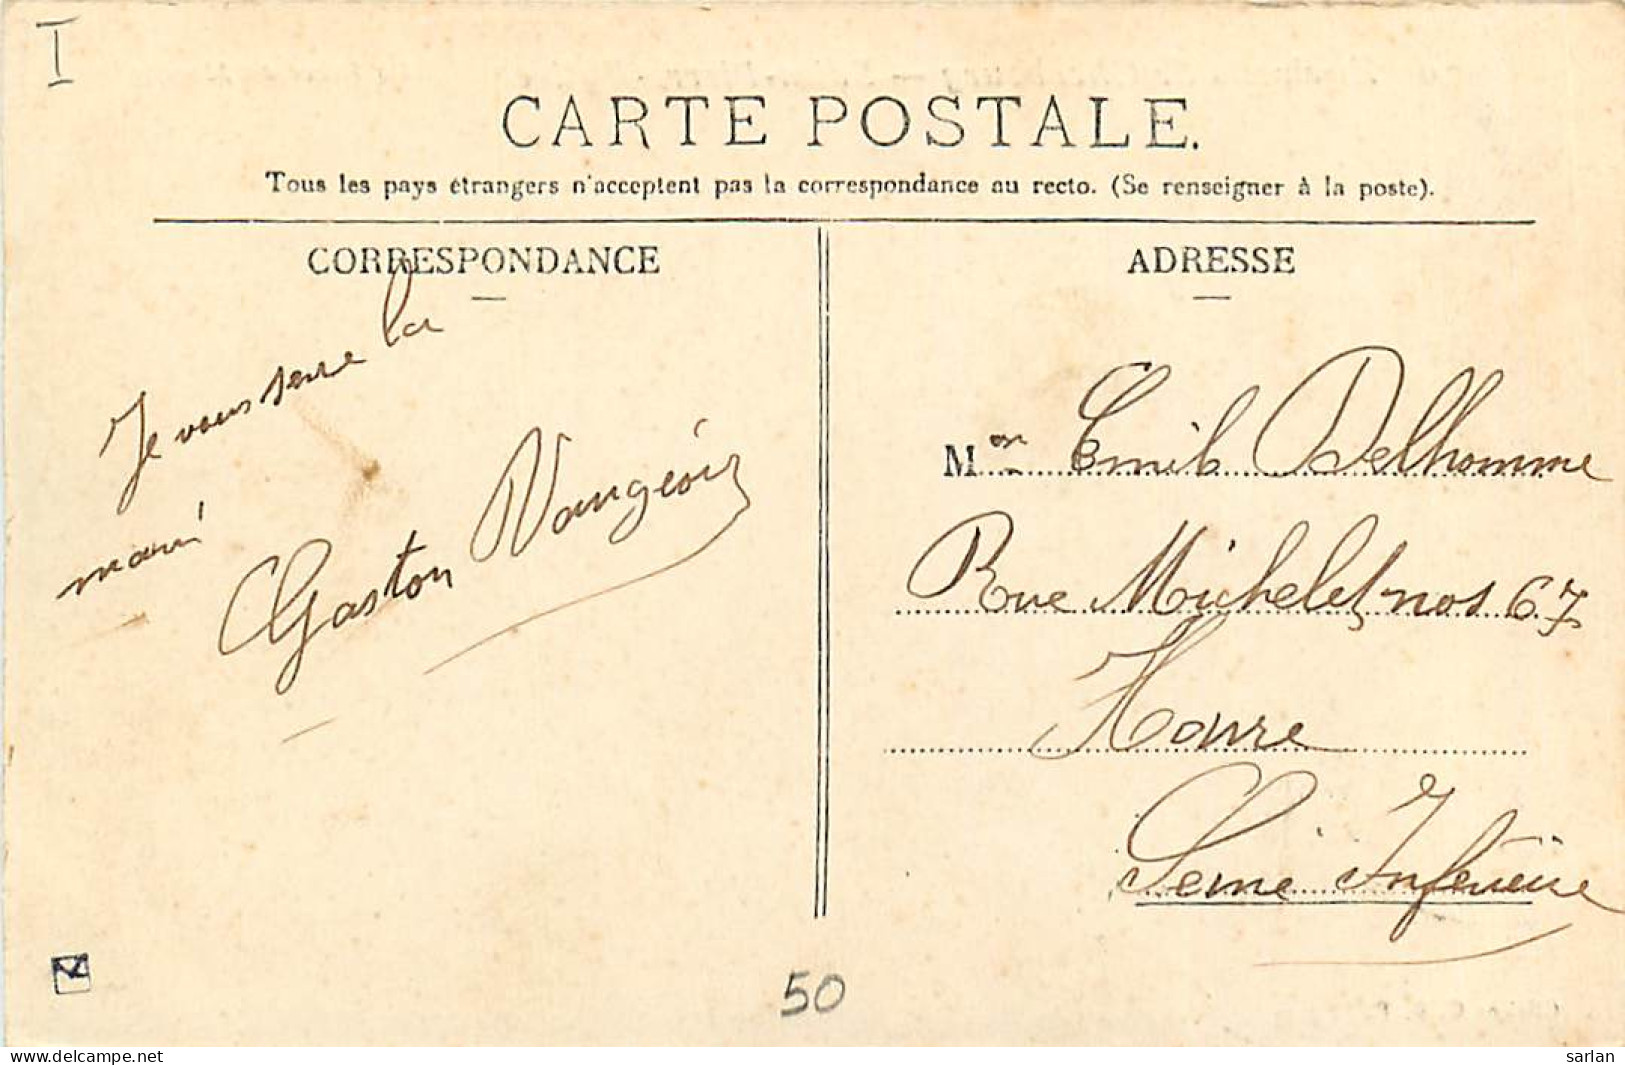 I
CARTE POSTALE.
Tous les pays étrangers n'acceptent pas la correspondance au recto. (Se renseigner à la poste).
CORRESPONDANCE
Je vous serre la
main
Gaston Vaugéois
ADRESSE
Mon Emile Delhomme
Rue Michelet nos 67
Havre
Seine Inférieure
50
delcampe.net
sarlan